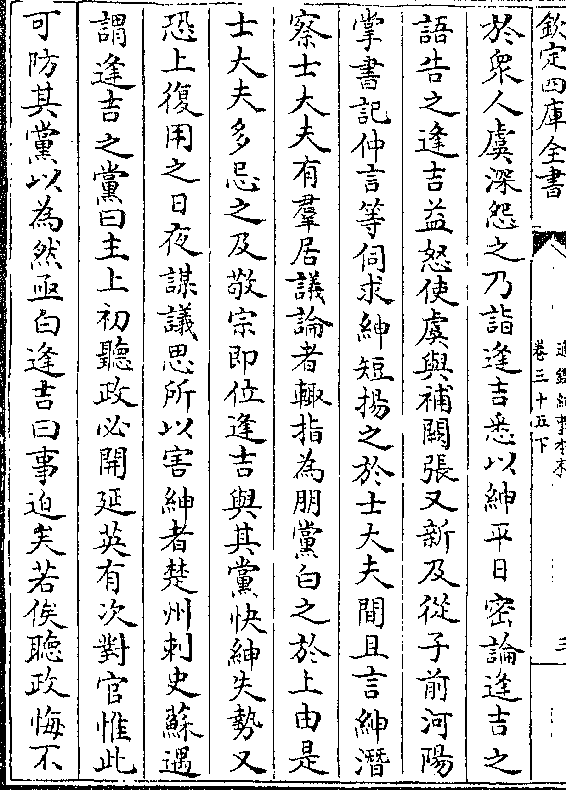 欽定四庫全書
通鑑紀事本末
卷三十五下
三
於衆人虞深怨之乃詣逢吉悉以紳平日密論逢吉之
語告之逢吉益怒使虞與補闕張又新及從子前河陽
掌書記仲言等伺求紳短揚之於士大夫間且言紳潛
察士大夫有羣居議論者輙指為朋黨白之於上由是
士大夫多忌之及敬宗即位逢吉與其黨快紳失勢又
恐上復用之日夜謀議思所以害紳者楚州刺史蘇遇
謂逢吉之黨曰主上初聽政必開延英有次對官惟此
可防其黨以為然亟白逢吉曰事迫矣若俟聽政悔不